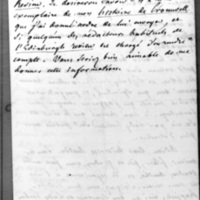 Review. Je desirerais savoir s'il y a un
exemplaire de mon histoire de Cromwell
que j'ai donné ordre de lui envoyer, et
si quelqu'un des rédacteurs habituels de
l'Edinburgh review est chargé d'en rendre
compte. Vous seriez bien aimable de me
donner cette information.